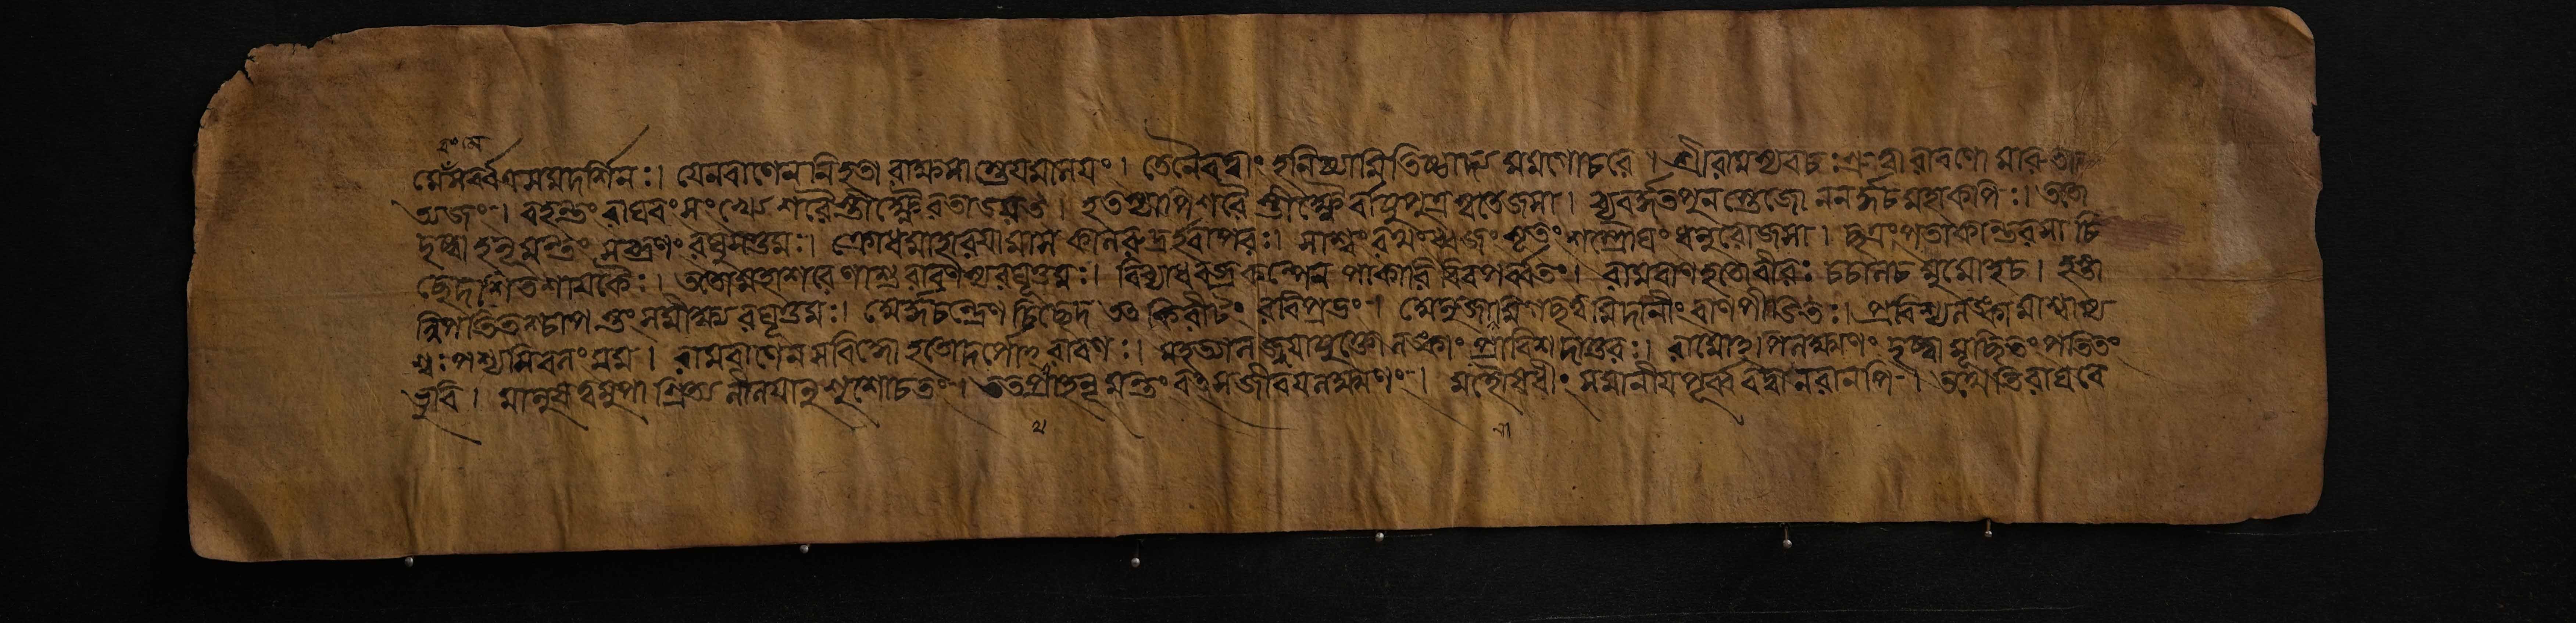 মেসর্ব্বত্রসমদর্শিনঃ। যেনবাণেননিহতা রাক্ষসাস্তেযমালয়ং। তেনৈবত্বাং হনিষ্যামিতিষ্ঠাদ্য মমগোচরে। শ্রীরামস্যবচঃশ্রুত্বা রাবণো মারুতা
ত্মজং। বহন্তং রাঘবং সংখ্যে শরৈস্তীক্ষ্ণৈরতাডয়ত। হতস্যাপিশরৈস্তীক্ষ্ণৈর্বায়ুপুত্রস্বতেজসা। ব্যবর্দ্ধতপুনস্তেজো ননর্দ্দচমহাকপিঃ। ততো
দৃষ্ট্বা হনূমন্তং সব্রণং রঘুসত্তমঃ। ক্রোধমাহারয়ামাস কালরুদ্রইবাপরঃ। সাশ্বং রথংধ্বজং সূতং শস্ত্রৌঘং ধনুরোজসা। ছত্রং পতাকান্তরসা চি
চ্ছেদশিতশায়কৈঃ। ততোমহাশরেণাশু রাবণং রঘূত্তমঃ। বিব্যাধবজ্রকল্পেন পাকারিরিবপর্ব্বতং। রামবাণহতোবীরঃ চচালচ মুমোহচ। হস্তা
ন্নিপতিতশ্চাপস্তং সমীক্ষ্য রঘূত্তমঃ। অর্দ্ধচন্দ্রেণ চিচ্ছেদ তৎকিরীটং রবিপ্রভং। অনুজানামিগচ্ছত্বমিদানীং বাণপীডিতঃ। প্রবিশ্যলঙ্কামাশ্বাস্য
শ্বঃপশ্যসিবলং মম। রামবাণেনসংবিদ্ধো হতোদর্পোথ রাবণঃ। মহত্যালজ্জয়াযুক্তোলঙ্কাং প্রাবিশদাতুরঃ। রামোপিলক্ষ্মণং দৃষ্ট্বা মূর্চ্ছিতং পতিতং
ভুবি। মানুষত্বমুপাশ্রিত্য লীলয়ানুশুশোচতং। ততপ্রাহহনূমন্তং বৎসজীবয়লক্ষ্মণং। মহৌষধীং সমানীয়পূর্ব্ববদ্বানরানপি। তথেতিরাঘবে